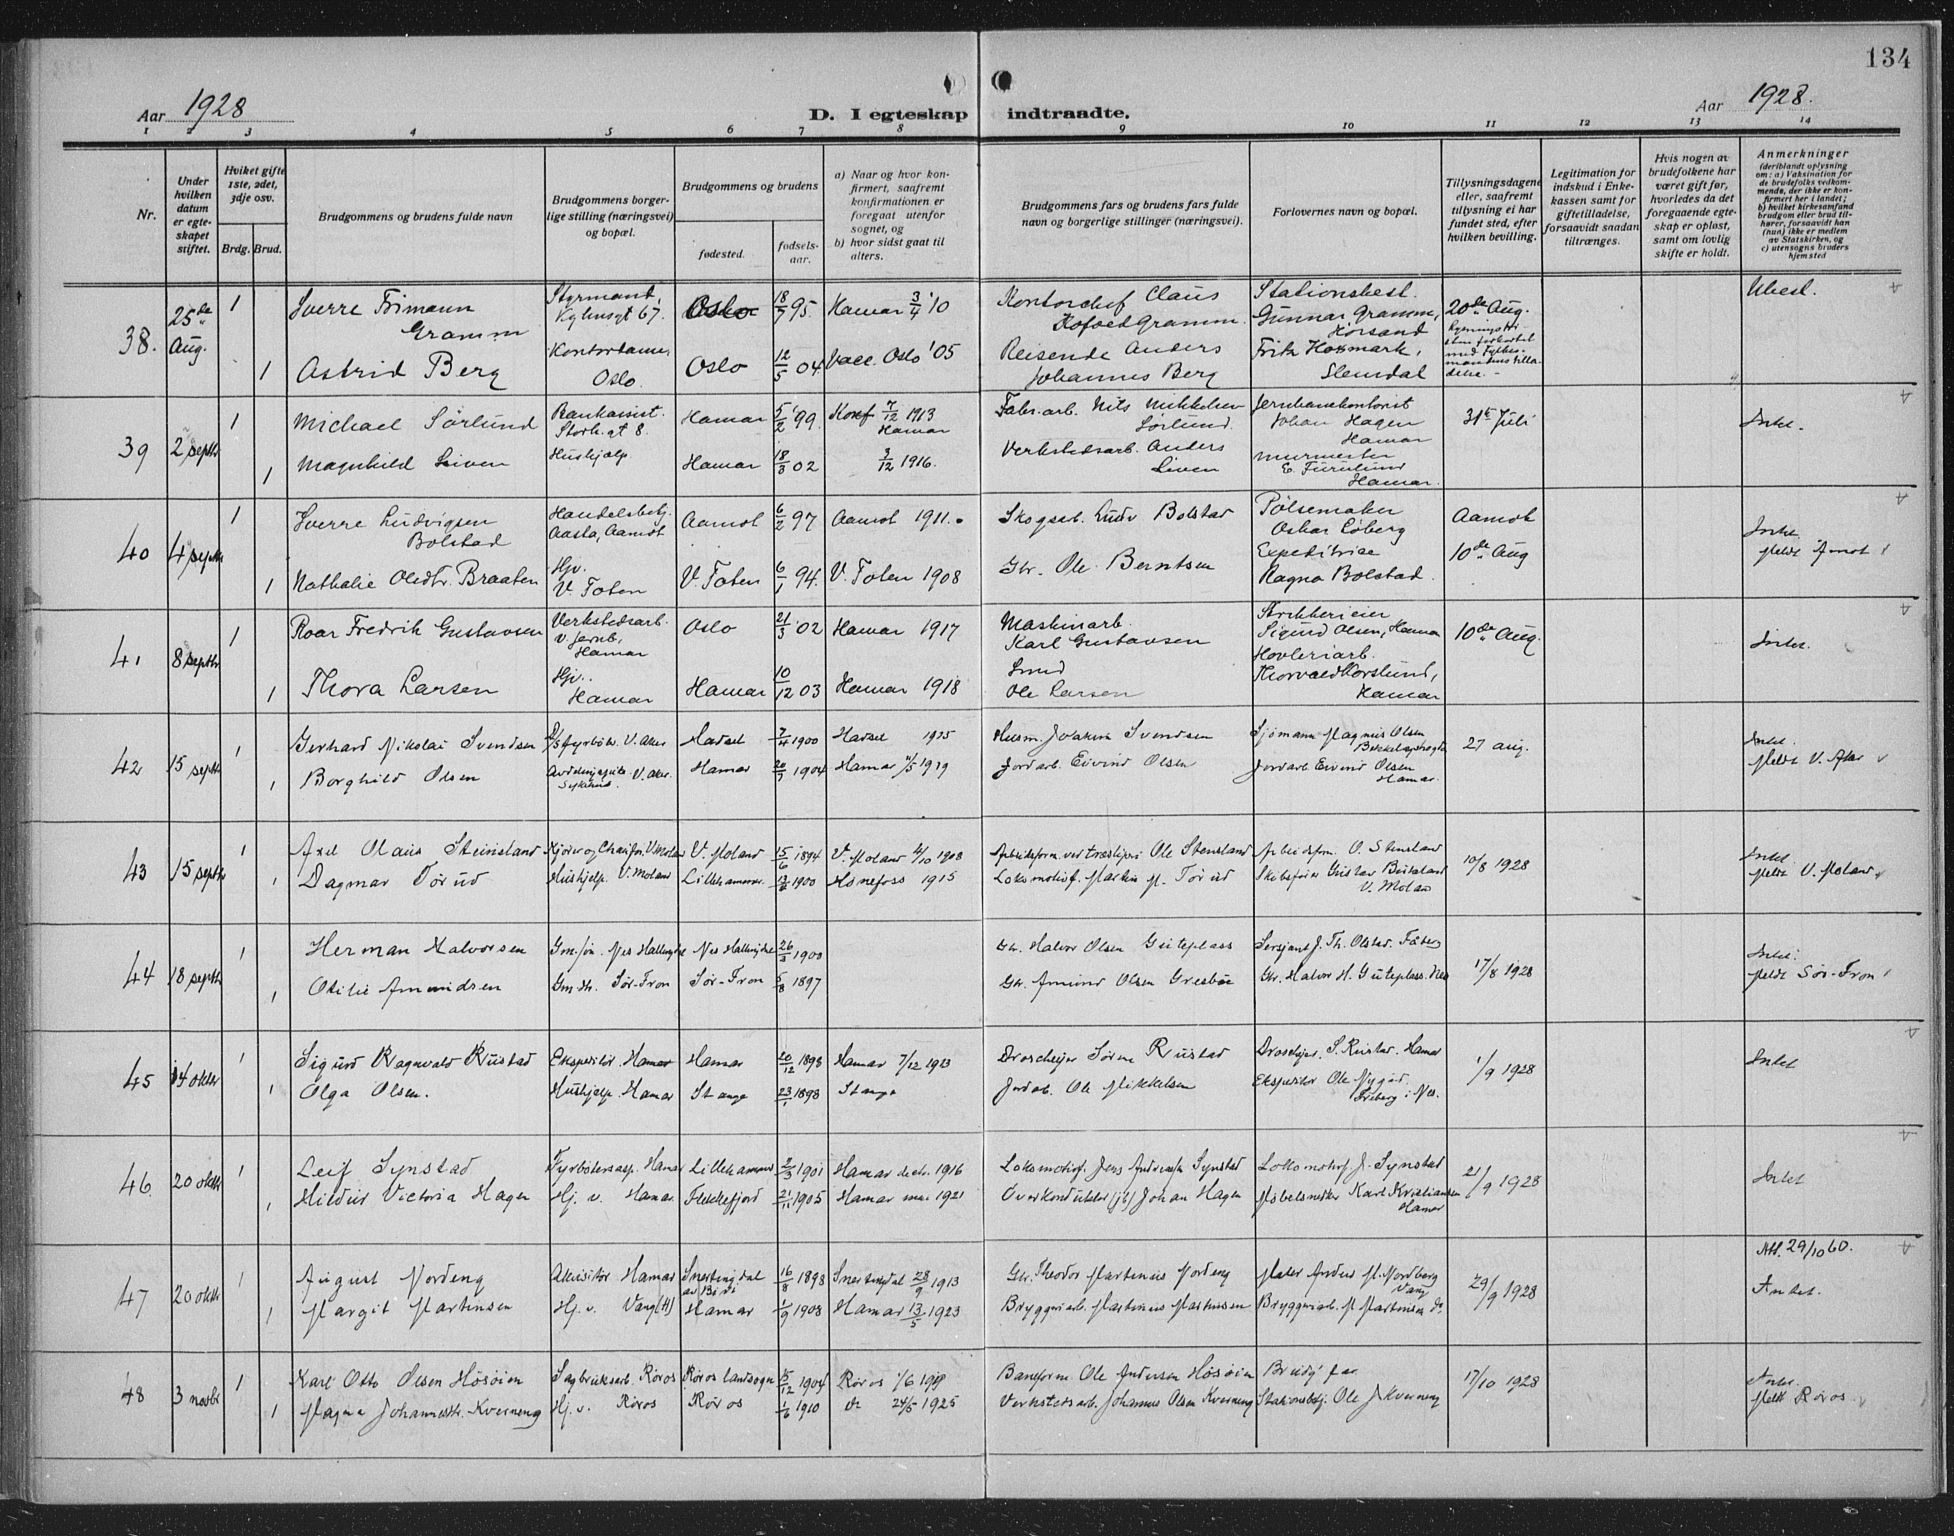 134
Aar 1928
D. I egteskap indtraadte.
Aar 1928.
1 2 3 4 5 6 7 8 9 10 11 12 13 14
Nr.
Under hvilken datum er egteskapet stiftet.
Hvilket gifte 1ste, 2det, 3dje osv.
Brdg. Brud.
Brudgommens og brudens fulde navn
Brudgommens borgerlige stilling (næringsvei) og bopæl.
Brudgommens og brudens
fødested.
fødselsaar.
a) Naar og hvor konfirmert, saafremt konfirmationen er foregaat utenfor sognet, og
b) hvor sidst gaat til alters.
Brudgommens fars og brudens fars fulde navn og borgerlige stillinger (næringsvei).
Forlovernes navn og bopæl.
Tillysningsdagene eller, saafremt tillysning ei har fundet sted, efter hvilken bevilling.
Legitimation for indskud i Enkekassen samt for giftetilladelse, forsaavidt saadan tiltrænges.
Hvis nogen av brudefolkene har været gift før, hvorledes da det foregaaende egteskap er opløst, samt om lovlig skifte er holdt.
Anmerkninger
(deriblandt oplysning om: a) Vaksination for de brudefolks vedkommende, der ikke er konfirmert her i landet; b) hvilket kirkesamfund brudgom eller brud tilhører, forsaavidt han (hun) ikke er medlem av Statskirken, og c) utensogns bruders hjemsted
38. 25de Aug. 1 Sverre Frimann Gramm Styrmand Oslo 18/7 95. Hamar 3/4 '10 Kontorchef Claus Kofoed Gramm. Stationsbest. Gunnar Gramm, 20de Aug. Ubest.
1 Astrid Berg Kontordame, Oslo. Oslo 12/5 04 Vacc. Oslo '05 Reisende Anders Johannes Berg Slemdal
39 2 septbr. 1 Michael Sørlund Bankassist. Storh.gt 8. Hamar 5/2 '99 Konf 7/12 1913 Hamar Fabr.arb. Nils Mikkelsen Sørlund. Jernbanekontorist Johan Hagen Hamar 31te Juli Intet.
1 Magnhild Liven Hushjælp Hamar 18/3 02 3/12 1916. Verkstedsarb. Anders Liven Murmester E. Furulund Hamar.
40 4 septbr 1 Sverre Ludvigsen Bolstad Handelsbetj. Aasta, Aamot Aamot 6/2 97 Aamot 1911. Skogsarb. Ludv Bolstad Pølsemaker Oskar Løberg Aamot 10de Aug Intet. Meldt Åmot
1 Nathalie Oledtr. Braaten Hjv. V. Toten V. Toten 6/1 94. V. Toten 1908 Gbr. Ole Berntsen Expeditrice Ragna Bolstad.
41 8 septbr 1 Roar Fredrik Gustavsen Verkstedsarb. v. Jernb. Hamar Oslo 21/3 02 Hamar 1917 Maskinarb. Karl Gustavsen Sigurd Olsen, Hamar 10de Aug. Intet.
1 Thora Larsen Hjv. Hamar Hamar 10/12 03 Hamar 1918 Smed Ole Larsen Høvleriarb. Thorvald Korslund, Hamar
42 15 septbr 1 Gerhard Nikolai Svendsen V. Aker Hadsel 7/4 1900 Hadsel 1915 Joakim Svendsen Sjømann Magnus Olsen 27 aug. Intet. Meldt V. Aker
1 Borghild Olsen V. Aker Sykehus. Hamar 1904 Hamar 1919 Jordarb. Eivind Olsen Jordarb. Eivind Olsen Hamar.
43 15 septbr 1 Axel Olaus Stensland V. Moland V. Moland 15/6 1894 V. Moland 4/10 1908 Ole Stensland O. Stensland 10/8 1928 Intet. Meldt V. Moland
1 Dagmar Tørud Hushjelp. V. Moland Lillehammer. 1900 Hønefoss 1915 Lokomotivf. Martin M. Tørud V. Moland
44 18 septbr 1 Herman Halvorsen Gm.søn Nes Hallingdal Nes Hallingdal 26/3 1900 Gbr. Halvor Olsen Guteplass Sersjant J. Th. Olstad. Fåberg 17/8 1928 Intet. Meldt Sør-Fron
1 Otilie Amundsen Sør-Fron Sør-Fron 5/8 1897 Gbr. Amund Olsen Gbr. Halvor H. Guteplass. Nes
45 14 oktbr 1 Sigurd Ragnvald Rustad Ekspeditør Hamar Hamar 20/12 1898 Hamar 7/12 1913 Droscheeier Søren Rustad Droscheeier. S. Rustad. Hamar 1/9 1928 Intet
1 Olga Olsen. Hushjelp. Hamar Stange 23/1 1898 Stange Jordarb. Ole Mikkelsen Ekspeditør Ole Nygård. i Nes.
46. 20 oktbr 1 Leif Synstad Fyrbøterasp. Hamar Lillehammer 2/3 1901 Hamar 1916 Lokomotivf. Jens Andreas Synstad Lokomotivf J. Synstad 21/9 1928 Intet
1 Hildur Victoria Hagen Hj. v. Hamar. Flekkefjord 21/11 1905 Hamar 1921 Overkonduktør (jb) Johan Hagen Møbelsnekker Karl Kristiansen Hamar
47 20 oktbr 1 August Nordeng Akvisitør Hamar Snertingdal av Biri 16/8 1893 Snertingdal 28/9 1913 Gbr. Theodor Martenius Nordeng Maler Anders M. Nordberg Vang 29/9 1928 29/10 60. Intet.
1 Margit Martinsen Hj. v. Vang (H) Hamar 1/9 1908 Hamar 13/5 1923 Bryggeriarb. Martinus Martinsen Bryggeriarb. M Martinsen do.
48 3 novbr 1 Karl Otto Olsen Høsøien Sagbruksarb. Røros Røros landsogn 15/12 1904 Røros 1/6 1919 Baneform. Ole Andersen Høsøien 17/10 1928 Intet. Meldt Røros.
1 Magna Johannesdtr. Kverneng Hj. v. Røros Røros 1/6 1910 do 24/5 1925 Verkstedsarb. Johannes Olsen Kverneng Stationsbtj. Ole J. Kverneng